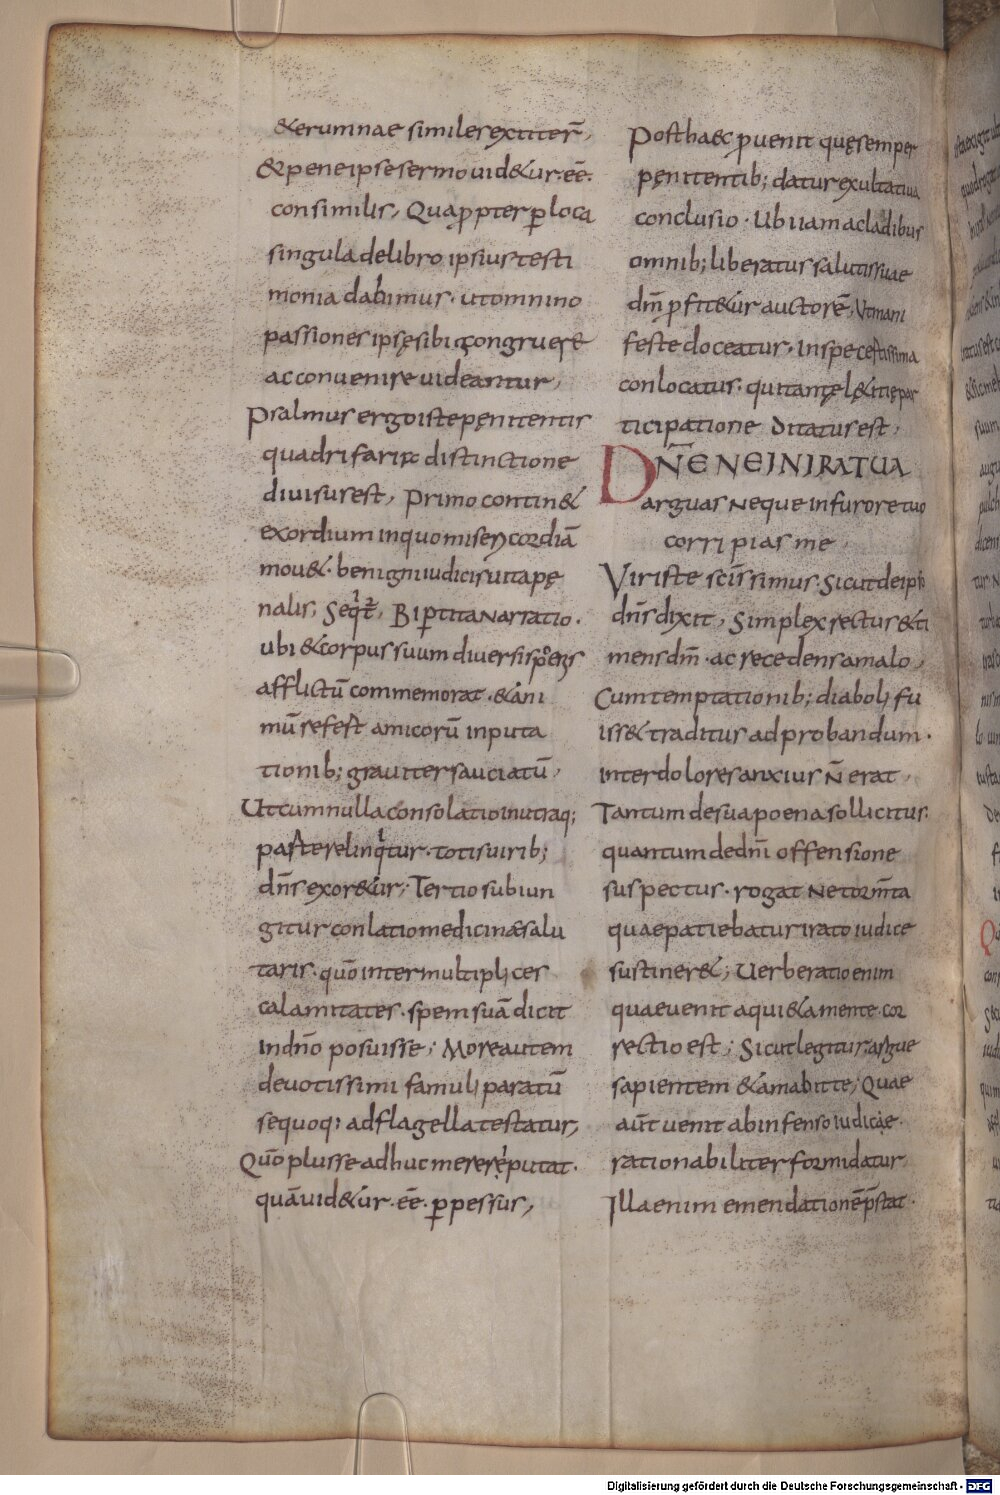 &erumnae similes extiter̄,
& pene ipse sermo uid&ur·eē·
consimilis, Quapropter ꝑ loca
singula de libro ipsius testi
monia dabimus· ut omnino
passiones ipsę sibi congruere
ac conuenire uideantur,
Psalmus ergo iste penitentis
quadrifaria distinctione
diuisus est, Primo contin&
exordium in quo misericordiā
mou&· benigni iudicis uitapę
nalis; Seqt̄, Biꝑtita narratio·
ubi & corpus suum diuersis
afflictū commemorat·& ani
mū refest amicorū inputa
tionib; grauiter sauciatū,
Ut cum nulla consolatio in utraq;
parte relinqtur· totis uirib;
dn̄s exor&ur; Tertio subiun
gitur conlatio medicinae salu
taris· quō inter multiplices
calamitates· spem suā dicit
in dn̄o posuisse; More autem
deuotissimi famuli paratū
sequoq; ad flagella testatur;
Quō plus se adhuc mereri putat·
quā uid&ur·eē· ꝑpessus,
Post haec puenit quę semper
penitentib; datur exultatiua
conclusio· Ubi iam a cladibus
omnib; liberatus salutis suae
dm̄ profit&ur auctorē, Ut mani
feste doceatur· in spe certissima
conlocatus· qui tantę l&itię par
ticipatione ditatus est,
DN̄E NE IN IRA TUA
arguas neque in furore tuo
corripias me,
Vir iste sc̄issimus· Sicut de ipso
dn̄s dixit, Simplex rectus & ti
mens dm̄· ac recedens a malo,
Cum temptationib; diaboli fu
iss& traditus ad probandum·
inter dolores anxius n̄ erat,
Tantum de sua poena sollicitus·
quantum de dn̄i offensione
suspectus· rogat ne tormīta
quae patiebatur irato iudice
sustiner&; Uerberatio enim
quae uenit a qui&a mente· cor
rectio est; Sicut legitur, argue
sapientem & amabit te; Quae
aūt uenit ab infenso iudice·
rationabiliter formidatur
Illa enim emendationē p̄stat·
Digitalisierung gefördert durch die Deutsche Forschungsgemeinschaft - DFG